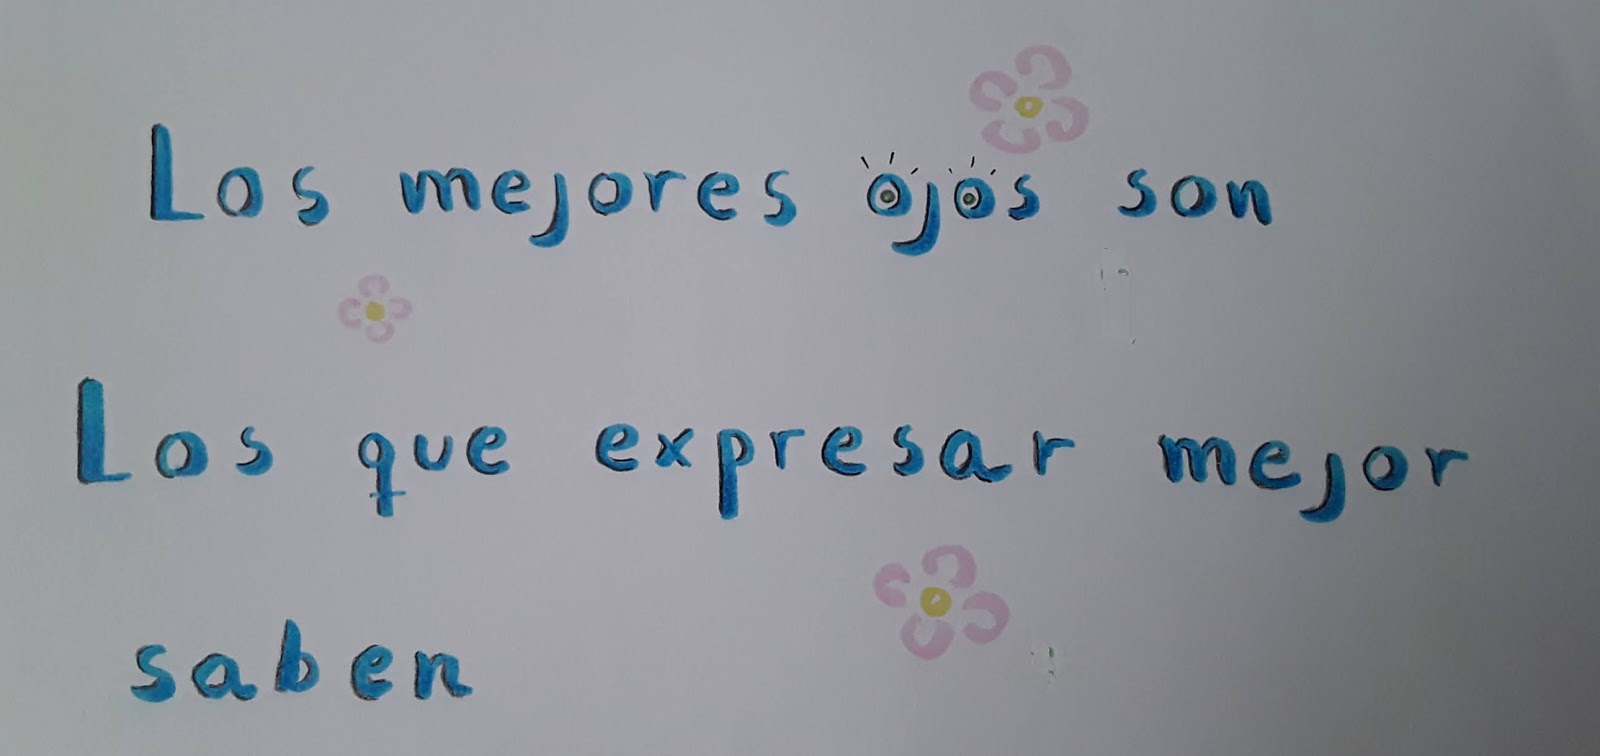 Los mejores ojos son
Los que expresar mejor
saben